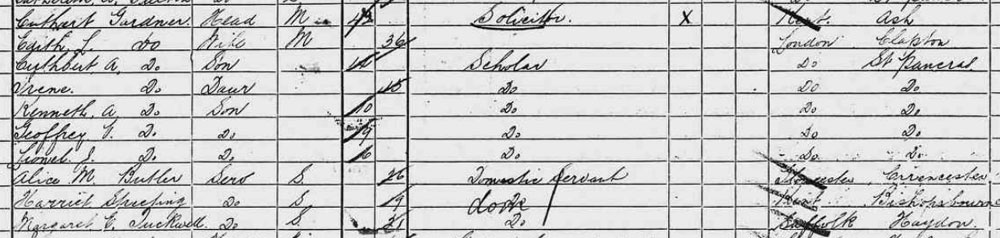 Cuthbert Gardner Head M 43 Solicitor. X Kent Ash
Edith L. Do Wife M 36 London Clapton
Cuthbert A. Do Son Scholar Do St Pancras
Irene. Do Daur 15 Do Do Do
Kenneth. A. Do Son 10 Do Do Do
Geoffrey V. Do Do 9 Do Do Do
Lionel. J. Do Do 6 Do Do Do
Alice M. Butler Serv S. 26 Domestic Servant Gloucester Cirencester
Harriet Do S. 19 dom Do Kent Bishopsbourne
Margaret E. Tuckwell. Do S. Do Suffolk Haydon.